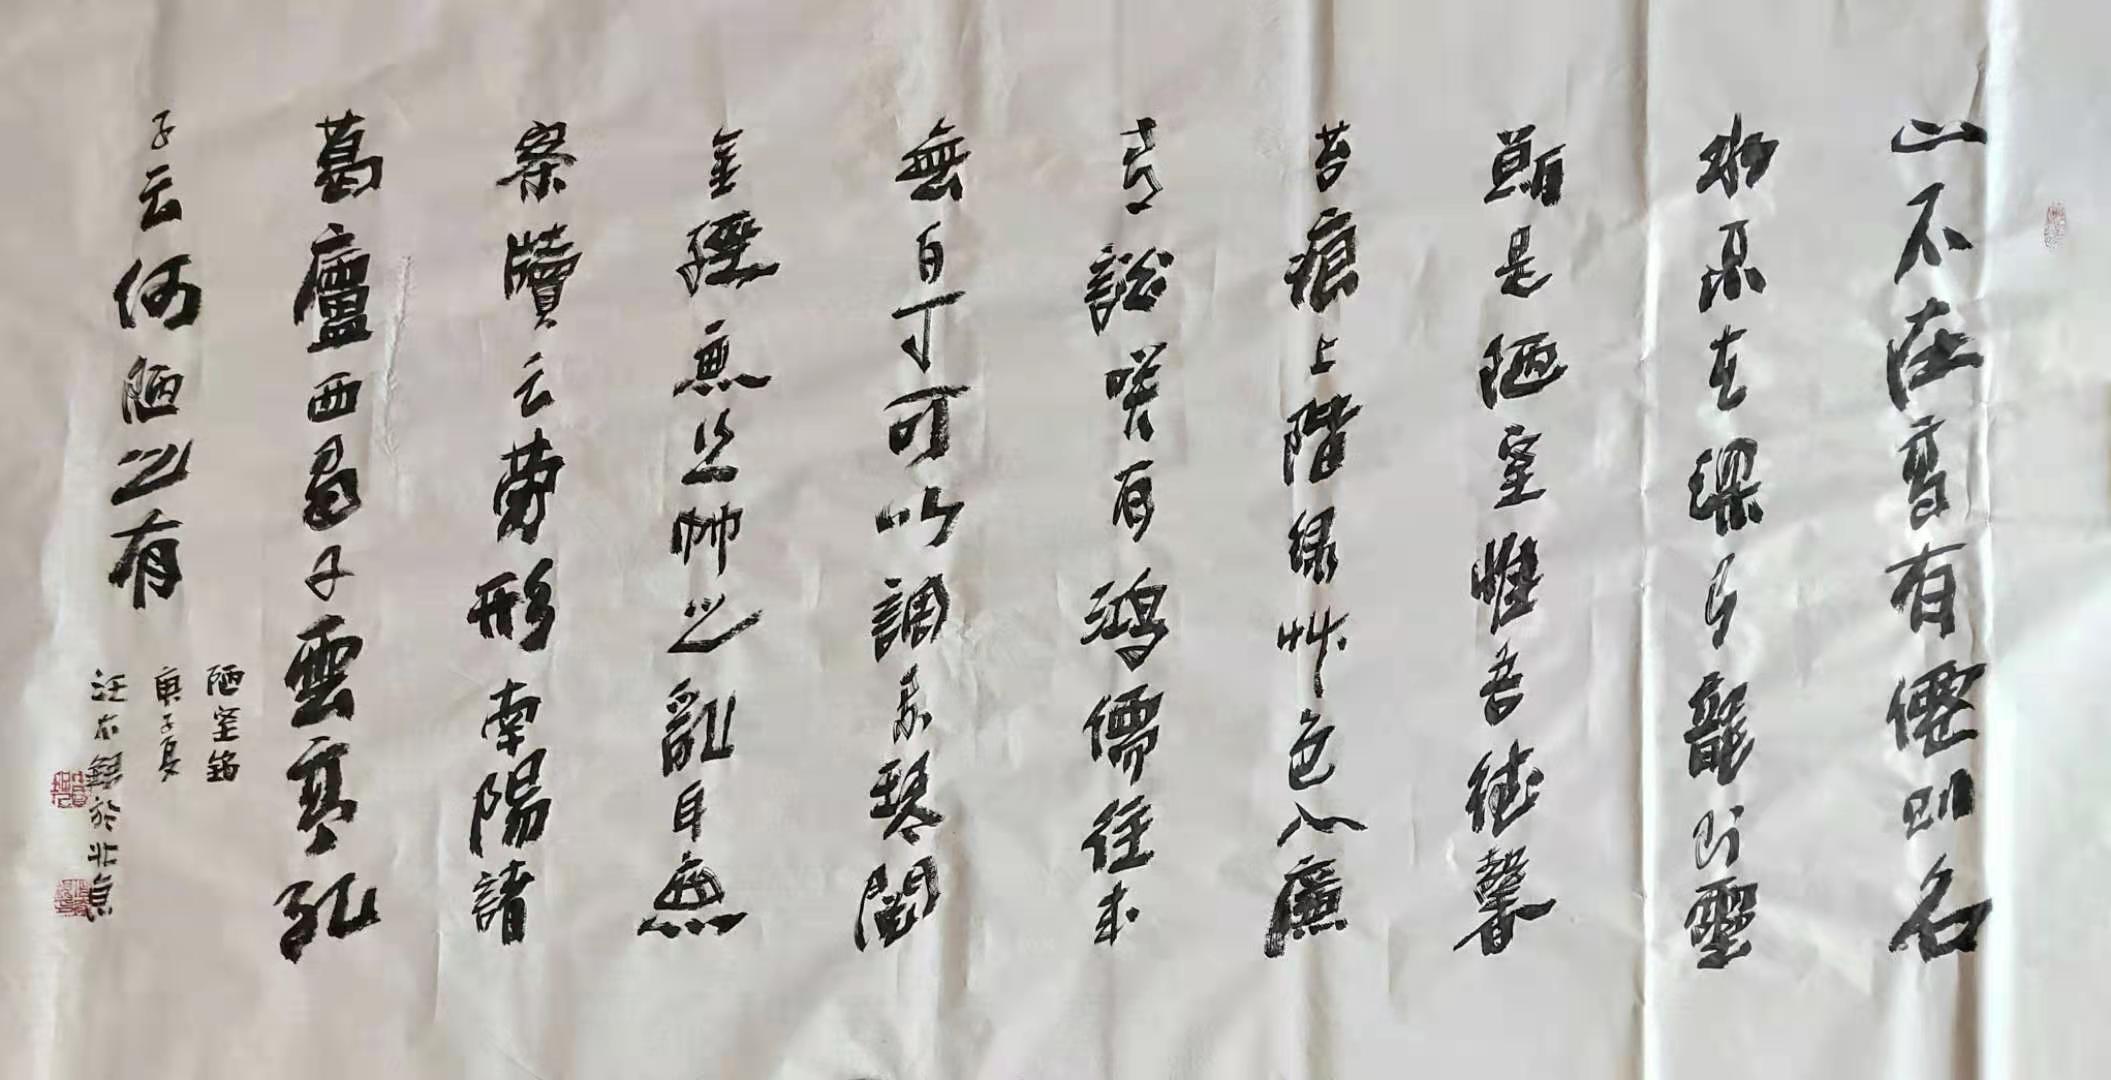 山不在高有僊則名
水不在深有龍則靈
斯是陋室惟吾德馨
苔痕上階绿艸色入廉
青談咲有鴻儒往来
無白丁可以調素琴閱
金經無丝竹之亂耳無
案牘之勞形南陽諸
葛廬西蜀子雲亭孔
子云何陋之有
陋室銘
庚子夏
汪於北京